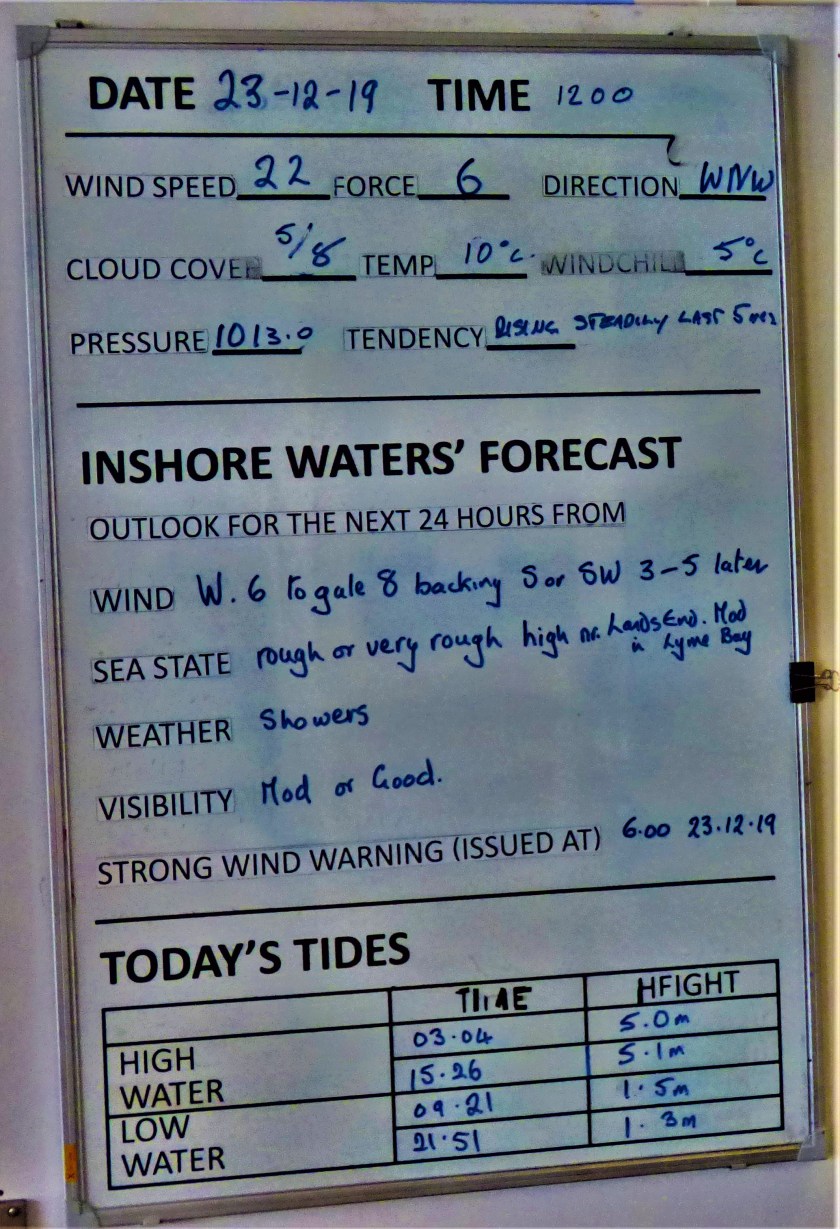 DATE 23-12-19 TIME 1200
WIND SPEED 22 FORCE 6 DIRECTION WNW
CLOUD COVER 5/8 TEMP 10°C. WINDCHILL 5°C
PRESSURE 1013.0 TENDENCY RISING STEADILY LAST 5
INSHORE WATERS' FORECAST
OUTLOOK FOR THE NEXT 24 HOURS FROM
WIND W. 6 to gale 8 backing S or SW 3-5 later
SEA STATE rough or very rough high nr. Lands End. Mod
in Lyme Bay
WEATHER Showers
VISIBILITY Mod or Good.
STRONG WIND WARNING (ISSUED AT) 6.00 23.12.19
TODAY'S TIDES
TIME HEIGHT
HIGH WATER 03.04 5.0m
15.26 5.1m
LOW WATER 09.21 1.5m
21.51 1.3m